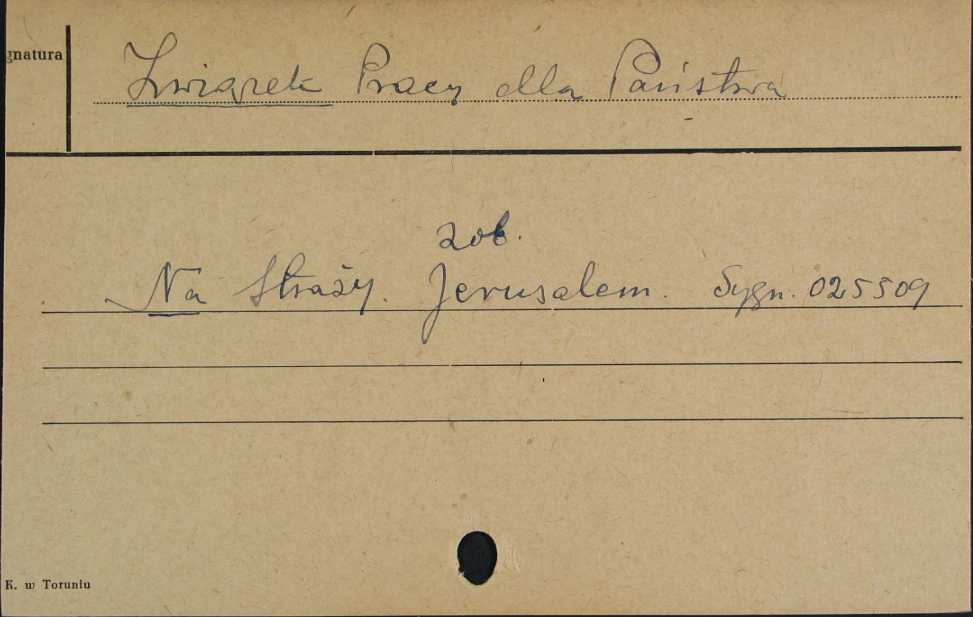 gnatura
Związek Pracy dla Państwa
zob.
Na Straży. Jerusalem. Sygn. 025509
K. w Toruniu